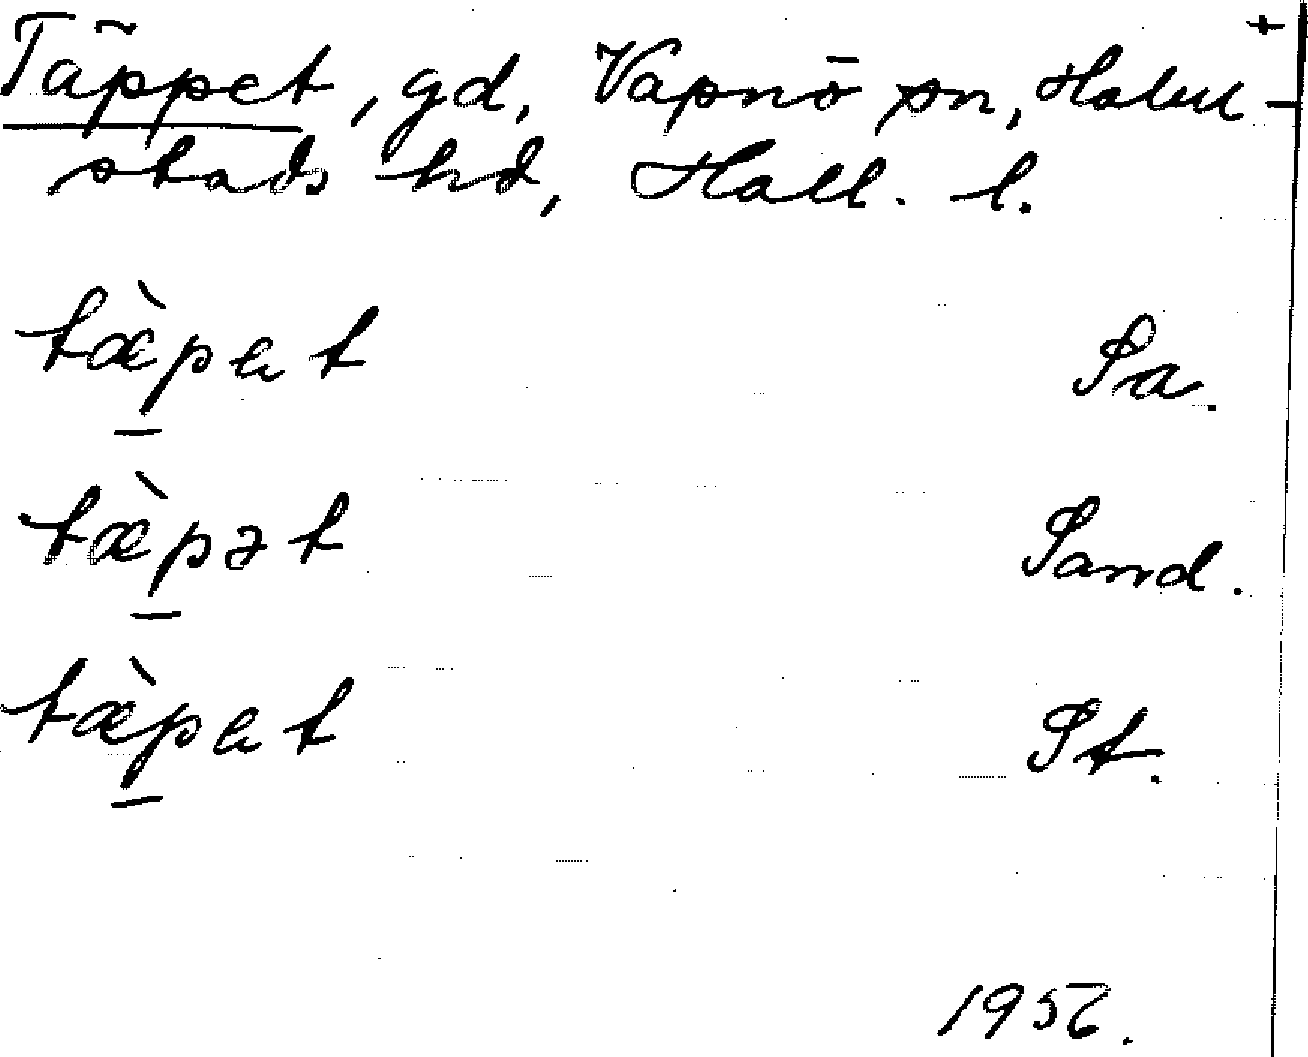 +
Täppet, gd, Vapnö sn, Halm-
stads hd, Hall. l.
tæ̀pet Sa.
tæ̀pət Sand.
tæ̀pet St.
1956.